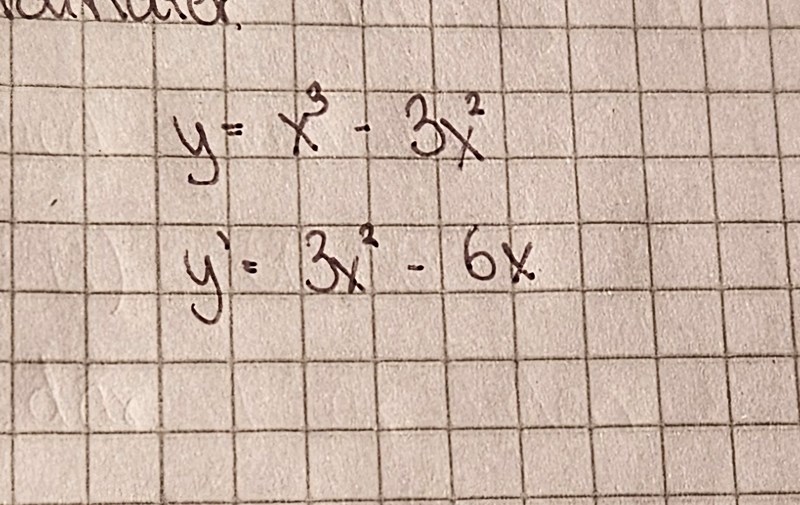 y = x³ - 3x²
y' = 3x² - 6x